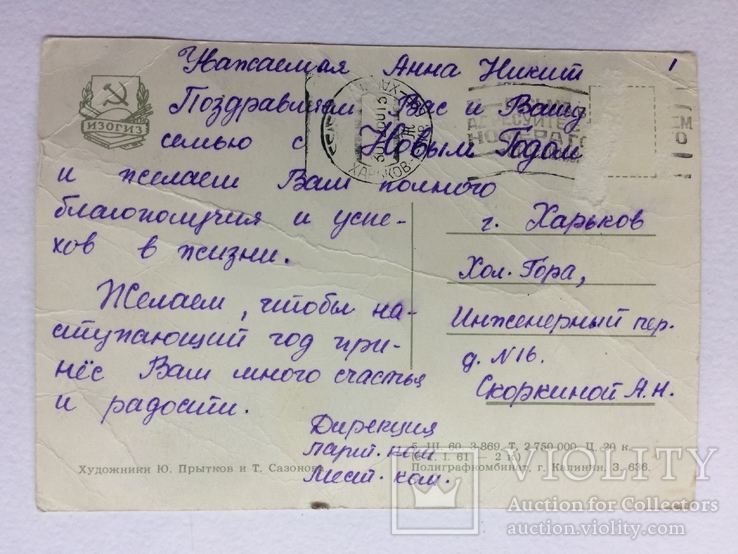 Уважаемая Анна Никит
Поздравляем Вас и Вашу
семью с Новым Годом
и желаем Вам полного
благополучия и успе-
хов в жизни.
Желаем, чтобы на-
ступающий год при-
нёс Вам много счастья
и радости.
Дирекция
парт. ком
мест. ком.
ИЗОГИЗ
ХАРЬКОВ
г. Харьков
Хол. Гора,
Инженерный пер.
д. N16.
Скоркиной А.Н.
Художники Ю. Прытков и Т. Сазонова
5. III. 60. 3-869. Т. 2 750 000. Ц. 20 к.
(с 1. I. 61 — 2 к.)
Полиграфкомбинат, г. Калинин, З. 636.
VIOLITY
Auction for Collectors
auction.violity.com